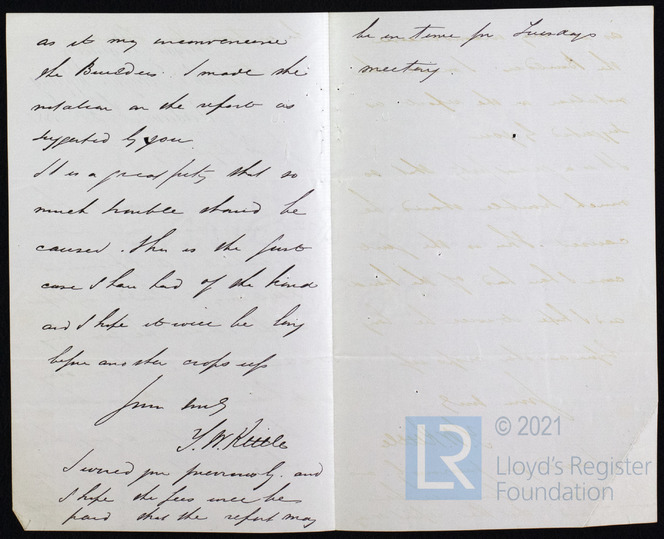 as it may inconvenience
the Builders. I made the
notation on the report as
suggested by you.
It is a great pity that so
much trouble should be
caused. This is the first
case I have had of the kind
and I hope it will be long
before another crops up
Yours truly
T. W. Kettle
I wired you previously. and
I hope the fees will be
paid that the report may
be in time for Tuesdays
meeting.
LR
© 2021
Lloyd's Register
Foundation